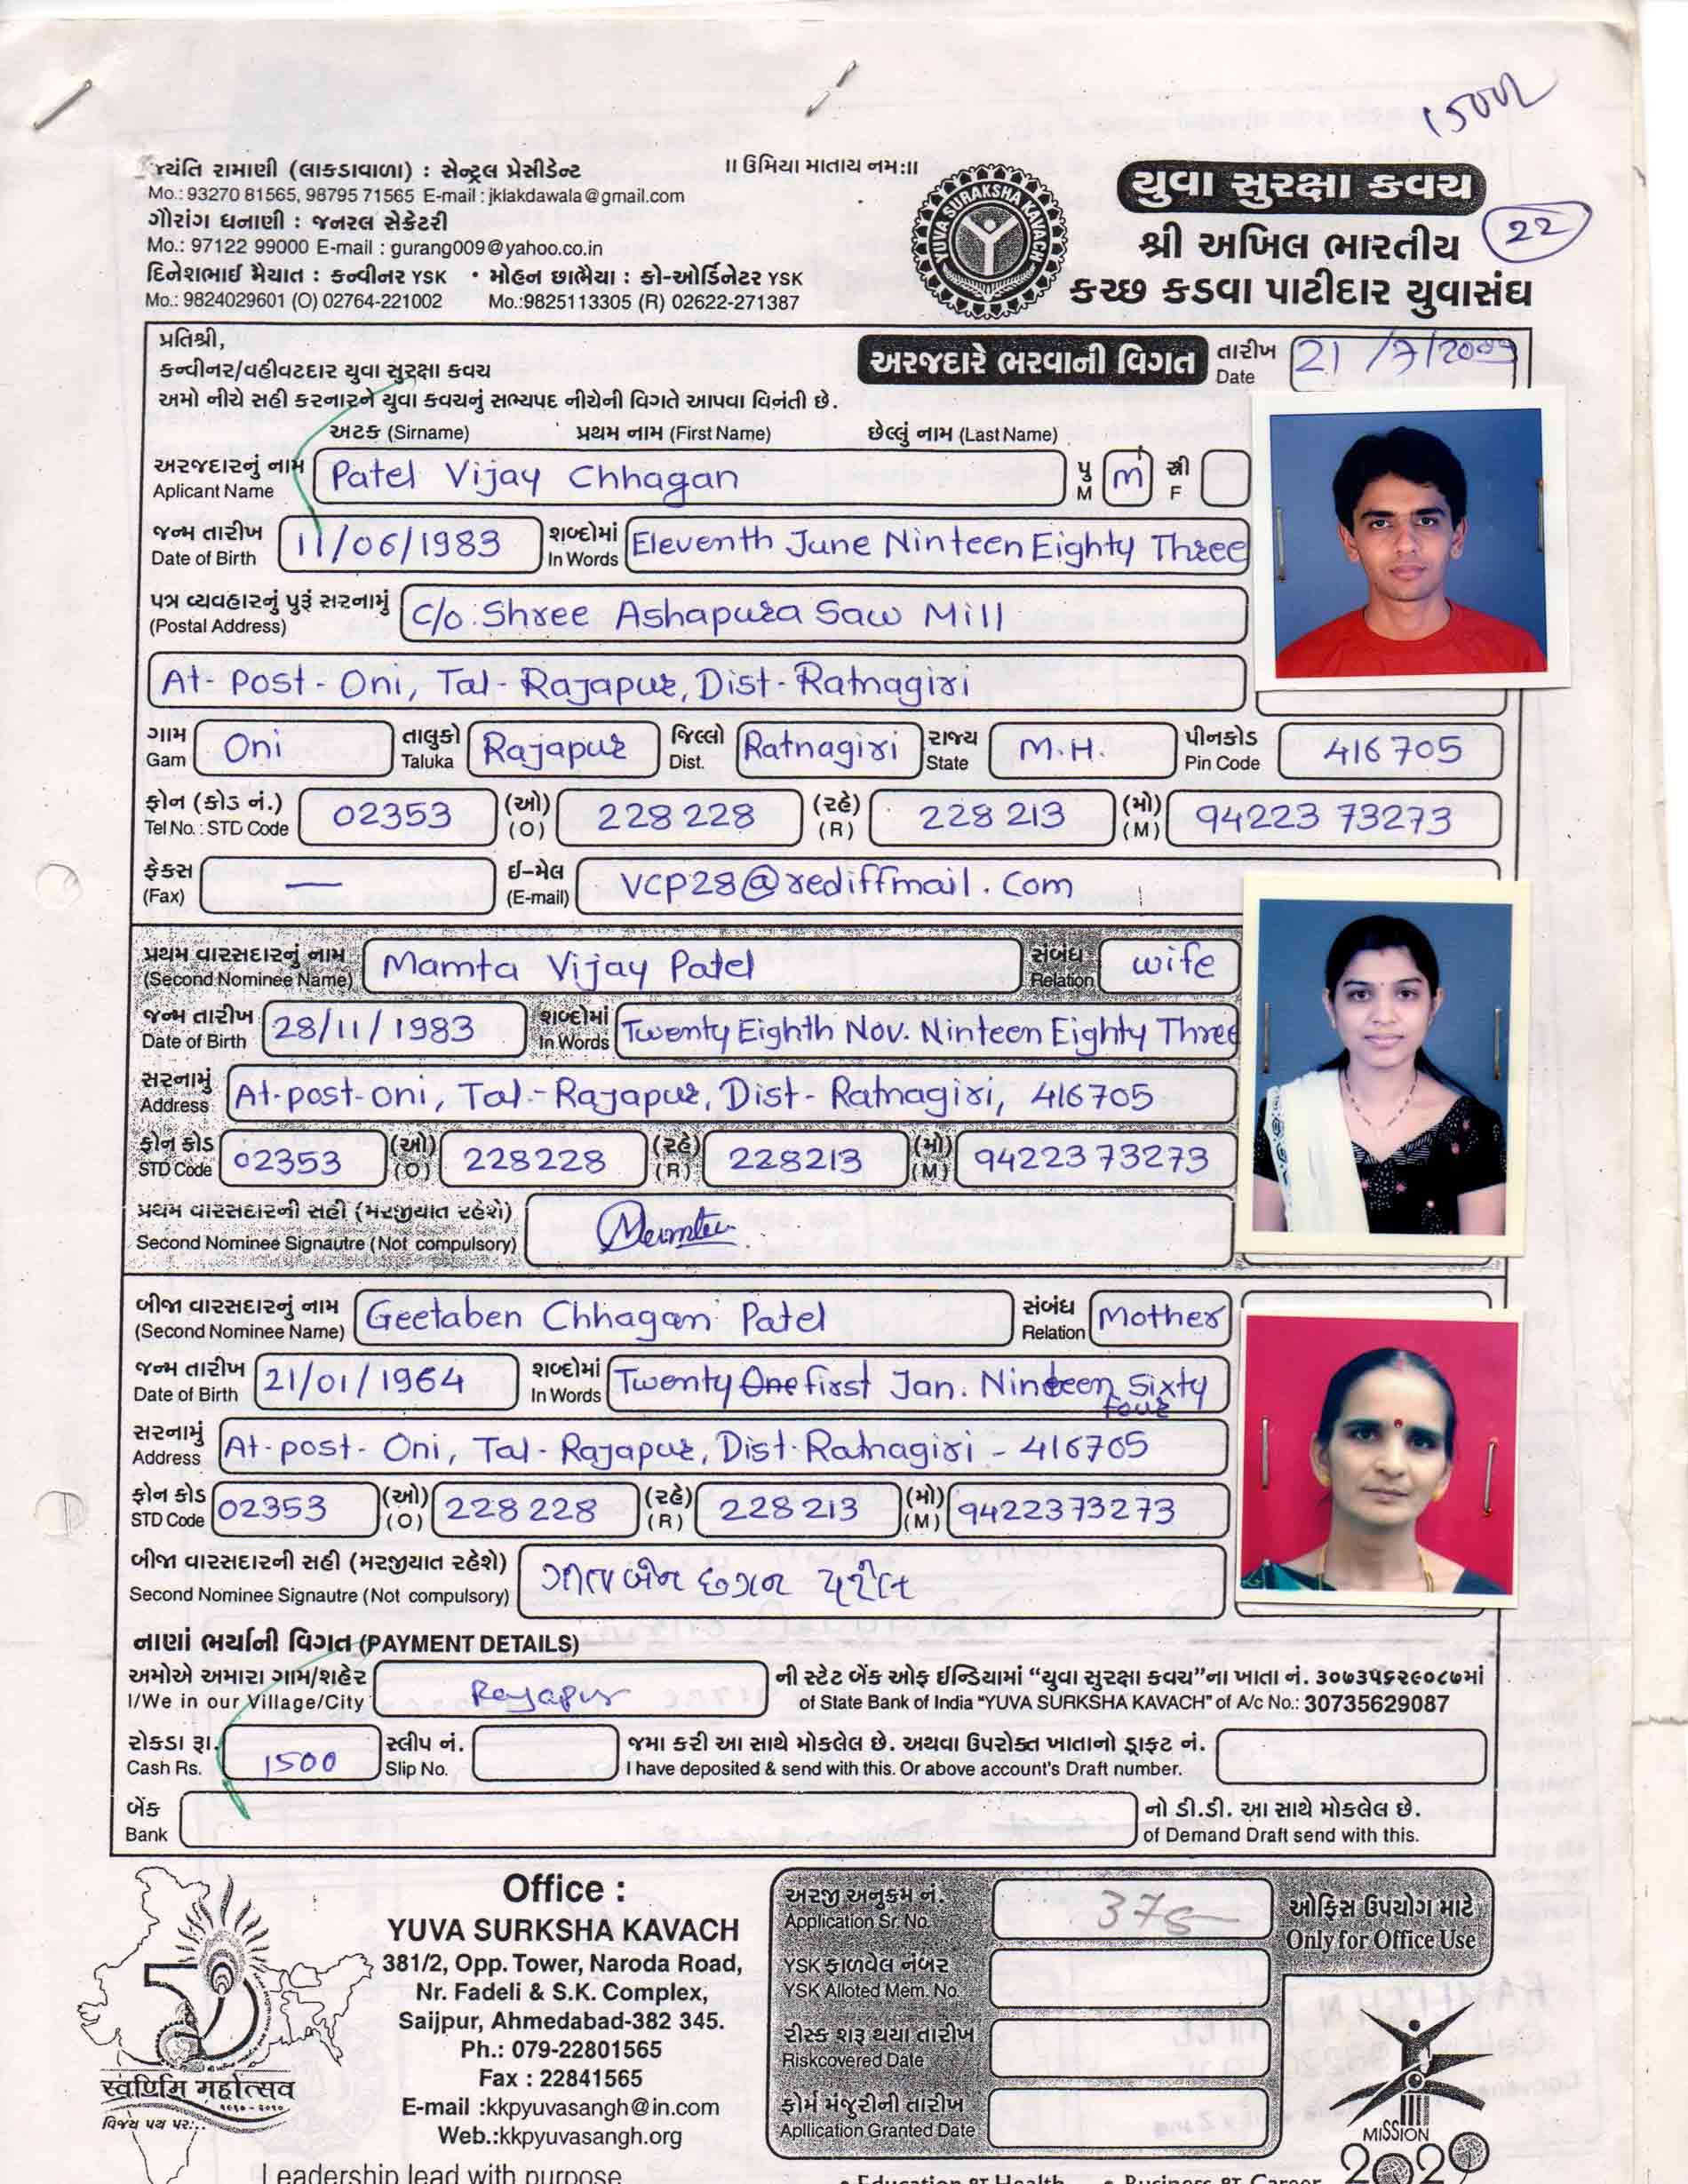 1500/-
જયંતિ રામાણી (લાકડાવાળા) : સેન્ટ્રલ પ્રેસીડેન્ટ
Mo.: 93270 81565, 98795 71565 E-mail : jklakdawala@gmail.com
ગૌરાંગ ધનાણી : જનરલ સેક્રેટરી
Mo.: 97122 99000 E-mail : gurang009@yahoo.co.in
દિનેશભાઈ મૈયાત : કન્વીનર YSK • મોહન છાભૈયા : કો-ઓર્ડિનેટર YSK
Mo.: 9824029601 (O) 02764-221002 Mo.:9825113305 (R) 02622-271387
।। ઉમિયા માતાય નમ:।।
YUVA SURAKSHA KAVACH
યુવા સુરક્ષા કવચ
શ્રી અખિલ ભારતીય
22
કચ્છ કડવા પાટીદાર યુવાસંઘ
પ્રતિશ્રી,
કન્વીનર/વહીવટદાર યુવા સુરક્ષા કવચ
અમો નીચે સહી કરનારને યુવા કવચનું સભ્યપદ નીચેની વિગતે આપવા વિનંતી છે.
અરજદારે ભરવાની વિગત તારીખ Date 21/7/2009
અટક (Sirname) પ્રથમ નામ (First Name) છેલ્લું નામ (Last Name)
અરજદારનું નામ Aplicant Name Patel Vijay Chhagan પુ M m સ્ત્રી F
જન્મ તારીખ Date of Birth 11/06/1983 શબ્દોમાં In Words Eleventh June Ninteen Eighty Three
પત્ર વ્યવહારનું પુરૂં સરનામું (Postal Address) C/o. Shree Ashapura Saw Mill
At- Post - Oni, Tal- Rajapur, Dist- Ratnagiri
ગામ Gam Oni તાલુકો Taluka Rajapur જિલ્લો Dist. Ratnagiri રાજ્ય State M.H. પીનકોડ Pin Code 416705
ફોન (કોડ નં.) Tel No. : STD Code 02353 (ઓ) (O) 228 228 (રહે) (R) 228 213 (મો) (M) 94223 73273
ફેકસ (Fax) — ઈ-મેલ (E-mail) VCP28@rediffmail.Com
પ્રથમ વારસદારનું નામ (Second Nominee Name) Mamta Vijay Patel સંબંધ Relation wife
જન્મ તારીખ Date of Birth 28/11/1983 શબ્દોમાં In Words Twenty Eighth Nov. Ninteen Eighty Three
સરનામું Address At-post-oni, Tal.-Rajapur, Dist- Ratnagiri, 416705
ફોન કોડ STD Code 02353 (ઓ) (O) 228228 (રહે) (R) 228213 (મો) (M) 9422373273
પ્રથમ વારસદારની સહી (મરજીયાત રહેશે) Second Nominee Signautre (Not compulsory) Mamta
બીજા વારસદારનું નામ (Second Nominee Name) Geetaben Chhagan Patel સંબંધ Relation Mother
જન્મ તારીખ Date of Birth 21/01/1964 શબ્દોમાં In Words Twenty One first Jan. Ninteen Sixty four
સરનામું Address At-post- Oni, Tal- Rajapur, Dist-Ratnagiri - 416705
ફોન કોડ STD Code 02353 (ઓ) (O) 228 228 (રહે) (R) 228 213 (મો) (M) 9422373273
બીજા વારસદારની સહી (મરજીયાત રહેશે) Second Nominee Signautre (Not compulsory) ગીતાબેન છગન પટેલ
નાણાં ભર્યાની વિગત (PAYMENT DETAILS)
અમોએ અમારા ગામ/શહેર Rajapur ની સ્ટેટ બેંક ઓફ ઈન્ડિયામાં “યુવા સુરક્ષા કવચ”ના ખાતા નં. ૩૦૭૩૫૬૨૯૦૮૭માં
I/We in our Village/City of State Bank of India “YUVA SURKSHA KAVACH” of A/c No.: 30735629087
રોકડા રૂા. Cash Rs. 1500 સ્લીપ નં. Slip No. જમા કરી આ સાથે મોકલેલ છે. અથવા ઉપરોક્ત ખાતાનો ડ્રાફટ નં.
I have deposited & send with this. Or above account's Draft number.
બેંક Bank નો ડી.ડી. આ સાથે મોકલેલ છે.
of Demand Draft send with this.
50
स्वर्णिम महोत्सव
૨૦૧૦ - ૨૦૧૦
વિજય પથ પર...
Office :
YUVA SURKSHA KAVACH
381/2, Opp. Tower, Naroda Road,
Nr. Fadeli & S.K. Complex,
Saijpur, Ahmedabad-382 345.
Ph.: 079-22801565
Fax : 22841565
E-mail :kkpyuvasangh@in.com
Web.:kkpyuvasangh.org
અરજી અનુક્રમ નં. Application Sr. No. 375
ઓફિસ ઉપયોગ માટે
Only for Office Use
YSK ફાળવેલ નંબર
YSK Alloted Mem. No.
રીસ્ક શરૂ થયા તારીખ
Riskcovered Date
ફોર્મ મંજુરીની તારીખ
Apllication Granted Date
MISSION
2020
Leadership lead with purpose
• Education BT Health • Business BT Career